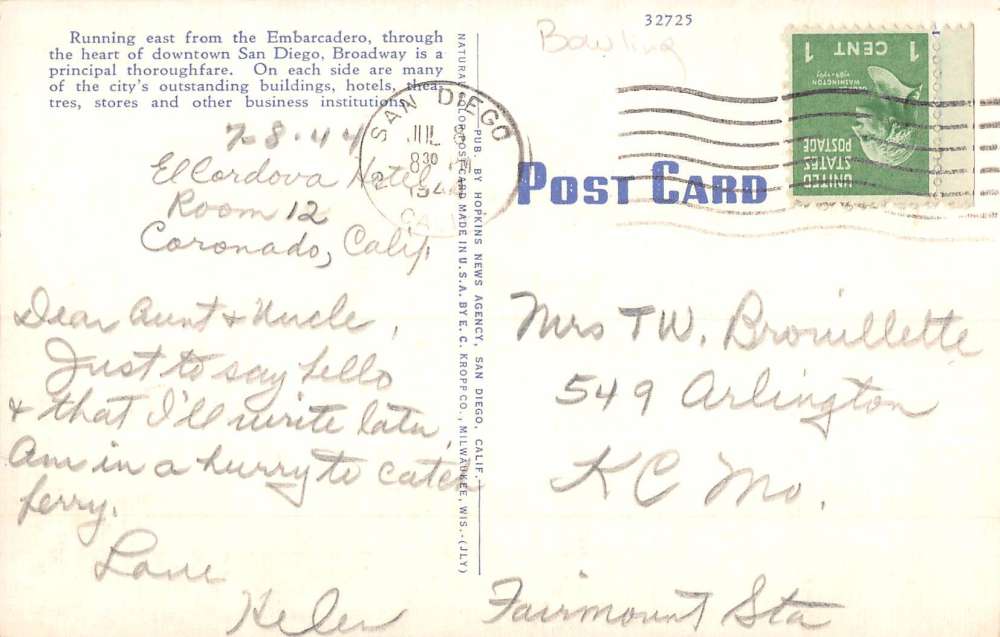 32725
Bowling
Running east from the Embarcadero, through
the heart of downtown San Diego, Broadway is a
principal thoroughfare. On each side are many
of the city's outstanding buildings, hotels, thea-
tres, stores and other business institutions.
7-8-44
El Cordova Hotel
Room 12
Coronado, Calif.
Dear Aunt & Uncle,
Just to say hello
& that I'll write later,
Am in a hurry to catch
ferry.
Love
Helen
NATURAL COLOR POST CARD MADE IN U.S.A. BY E. C. KROPP CO., MILWAUKEE, WIS.-(JLY)
PUB. BY HOPKINS NEWS AGENCY, SAN DIEGO, CALIF.
SAN DIEGO
JUL
8 30
194
CAL
POST CARD
1 CENT 1
WASHINGTON
UNITED
STATES
POSTAGE
Mrs TW. Brouillette
549 Arlington
K C Mo.
Fairmount Sta